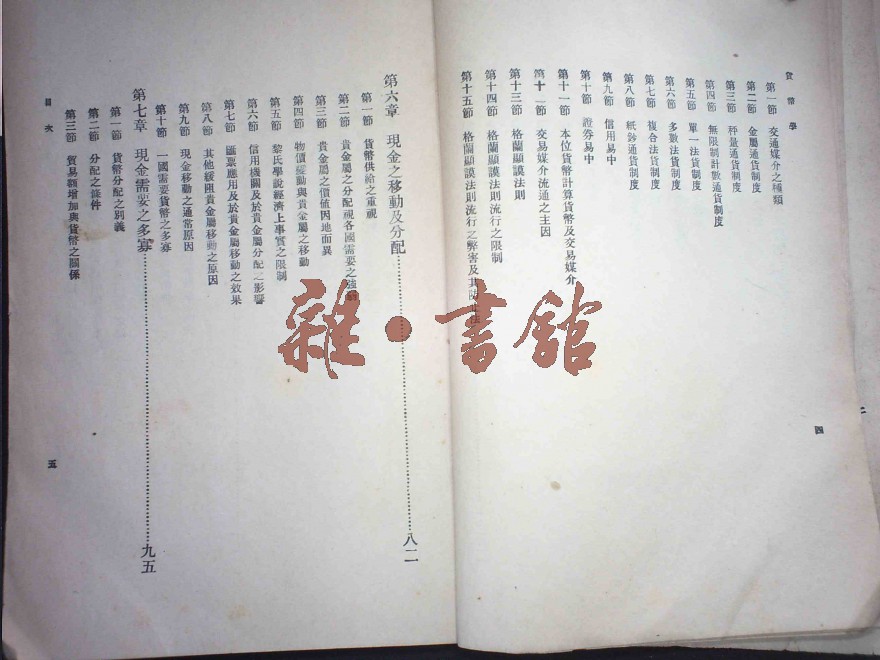 貨幣學
第一節 交通媒介之種類
第二節 金屬通貨制度
第三節 秤量通貨制度
第四節 無限制計數通貨制度
第五節 單一法貨制度
第六節 多數法貨制度
第七節 複合法貨制度
第八節 紙鈔通貨制度
第九節 信用易中
第十節 證券易中
第十一節 本位貨幣計算貨幣及交易媒介
第十二節 交易媒介流通之主因
第十三節 格蘭顯謨法則
第十四節 格蘭顯謨法則流行之限制
第十五節 格蘭顯謨法則流行之弊害及其
四
第六章 現金之移動及分配 八二
第一節 貨幣供給之重視
第二節 貴金屬之分配視各國需要之強
第三節 貴金屬之價值因地而異
第四節 物價變動與貴金屬之移動
第五節 黎氏學說經濟上事實之限制
第六節 信用機關及於貴金屬分配之影響
第七節 匯票應用及於貴金屬移動之效果
第八節 其他緩阻貴金屬移動之原因
第九節 現金移動之通常原因
第十節 一國需要貨幣之多寡
第七章 現金需要之多寡 九五
第一節 貨幣分配之別義
第二節 分配之條件
第三節 貿易額增加與貨幣之關係
目次
五
雜·書館